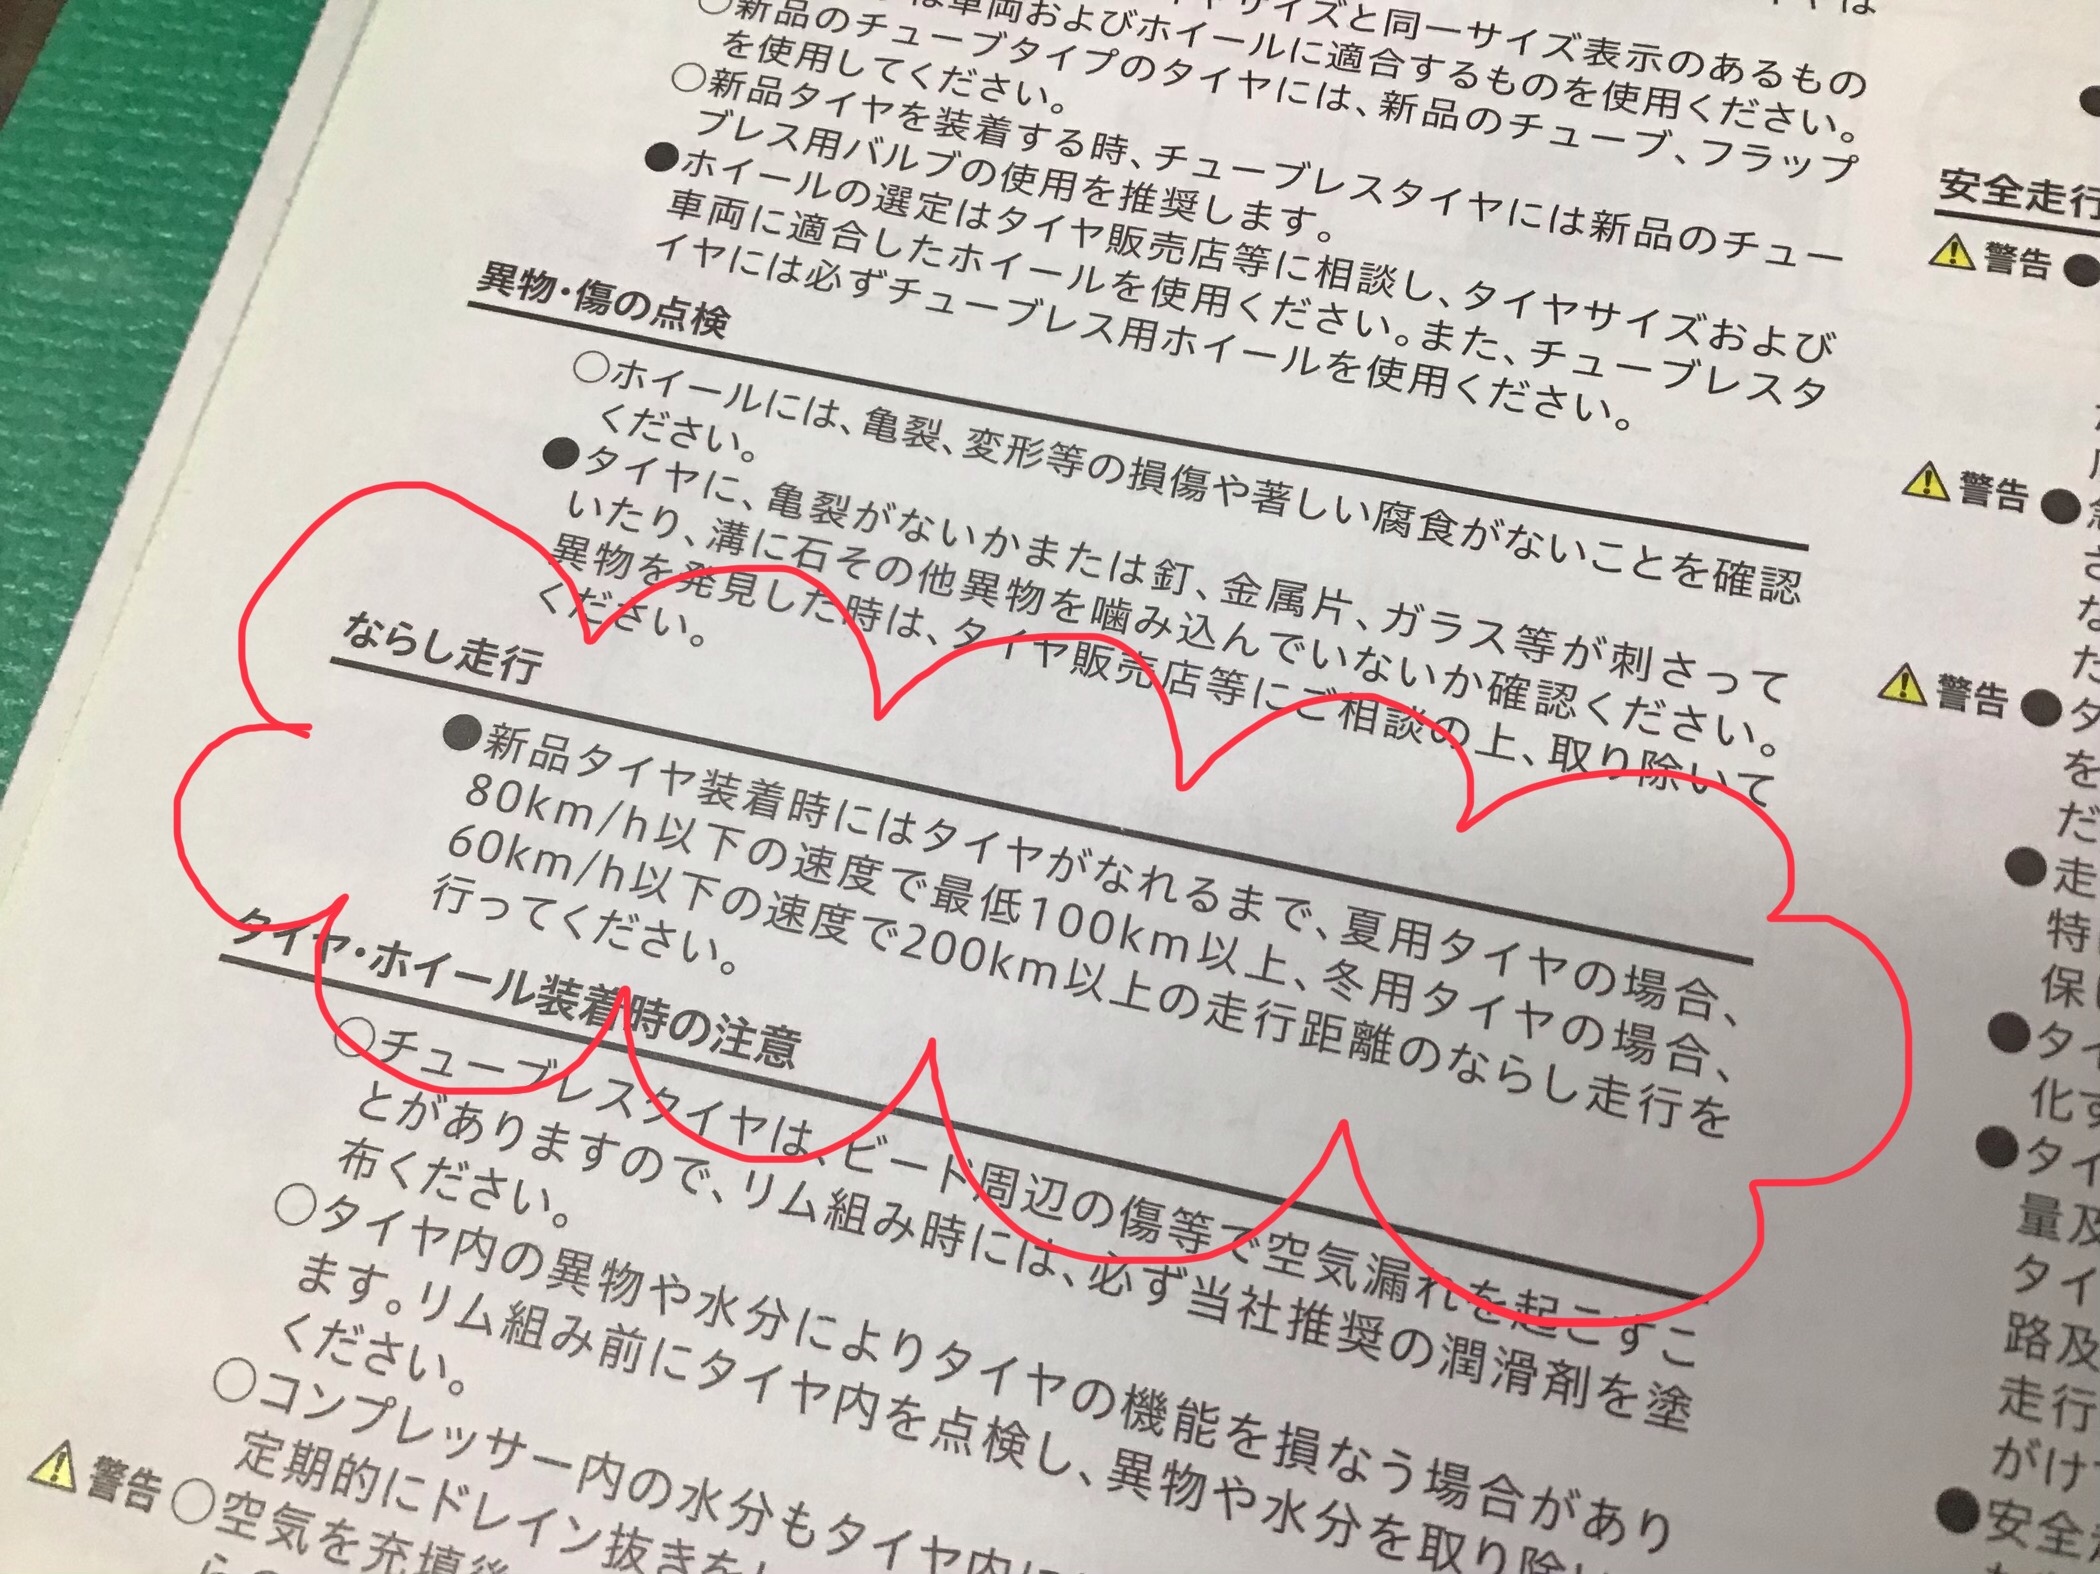 イヤは
サイズと同一サイズ表示のあるもの
は車両およびホイールに適合するものを使用ください。
○新品のチューブタイプのタイヤには、新品のチューブ、フラップ
を使用してください。
○新品タイヤを装着する時、チューブレスタイヤには新品のチュー
ブレス用バルブの使用を推奨します。
●ホイールの選定はタイヤ販売店等に相談し、タイヤサイズおよび
車両に適合したホイールを使用ください。また、チューブレスタ
イヤには必ずチューブレス用ホイールを使用ください。
異物・傷の点検
○ホイールには、亀裂、変形等の損傷や著しい腐食がないことを確認
ください。
●タイヤに、亀裂がないかまたは釘、金属片、ガラス等が刺さって
いたり、溝に石その他異物を噛み込んでいないか確認ください。
異物を発見した時は、タイヤ販売店等にご相談の上、取り除いて
ください。
ならし走行
●新品タイヤ装着時にはタイヤがなれるまで、夏用タイヤの場合、
80km/h以下の速度で最低100km以上、冬用タイヤの場合、
60km/h以下の速度で200km以上の走行距離のならし走行を
行ってください。
タイヤ・ホイール装着時の注意
○チューブレスタイヤは、ビード周辺の傷等で空気漏れを起こすこ
とがありますので、リム組み時には、必ず当社推奨の潤滑剤を塗
布ください。
○タイヤ内の異物や水分によりタイヤの機能を損なう場合があり
ます。リム組み前にタイヤ内を点検し、異物や水分を取り除い
ください。
○コンプレッサー内の水分もタイヤ内に
定期的にドレイン抜きを
警告 ○空気を充填後
安全走行
警告 ●
警告 ●急
さ
な
た
警告 ●タ
を
だ
●走
特
保
●タイ
化す
●タイ
量及
タイ
路及
走行
がけ
●安全